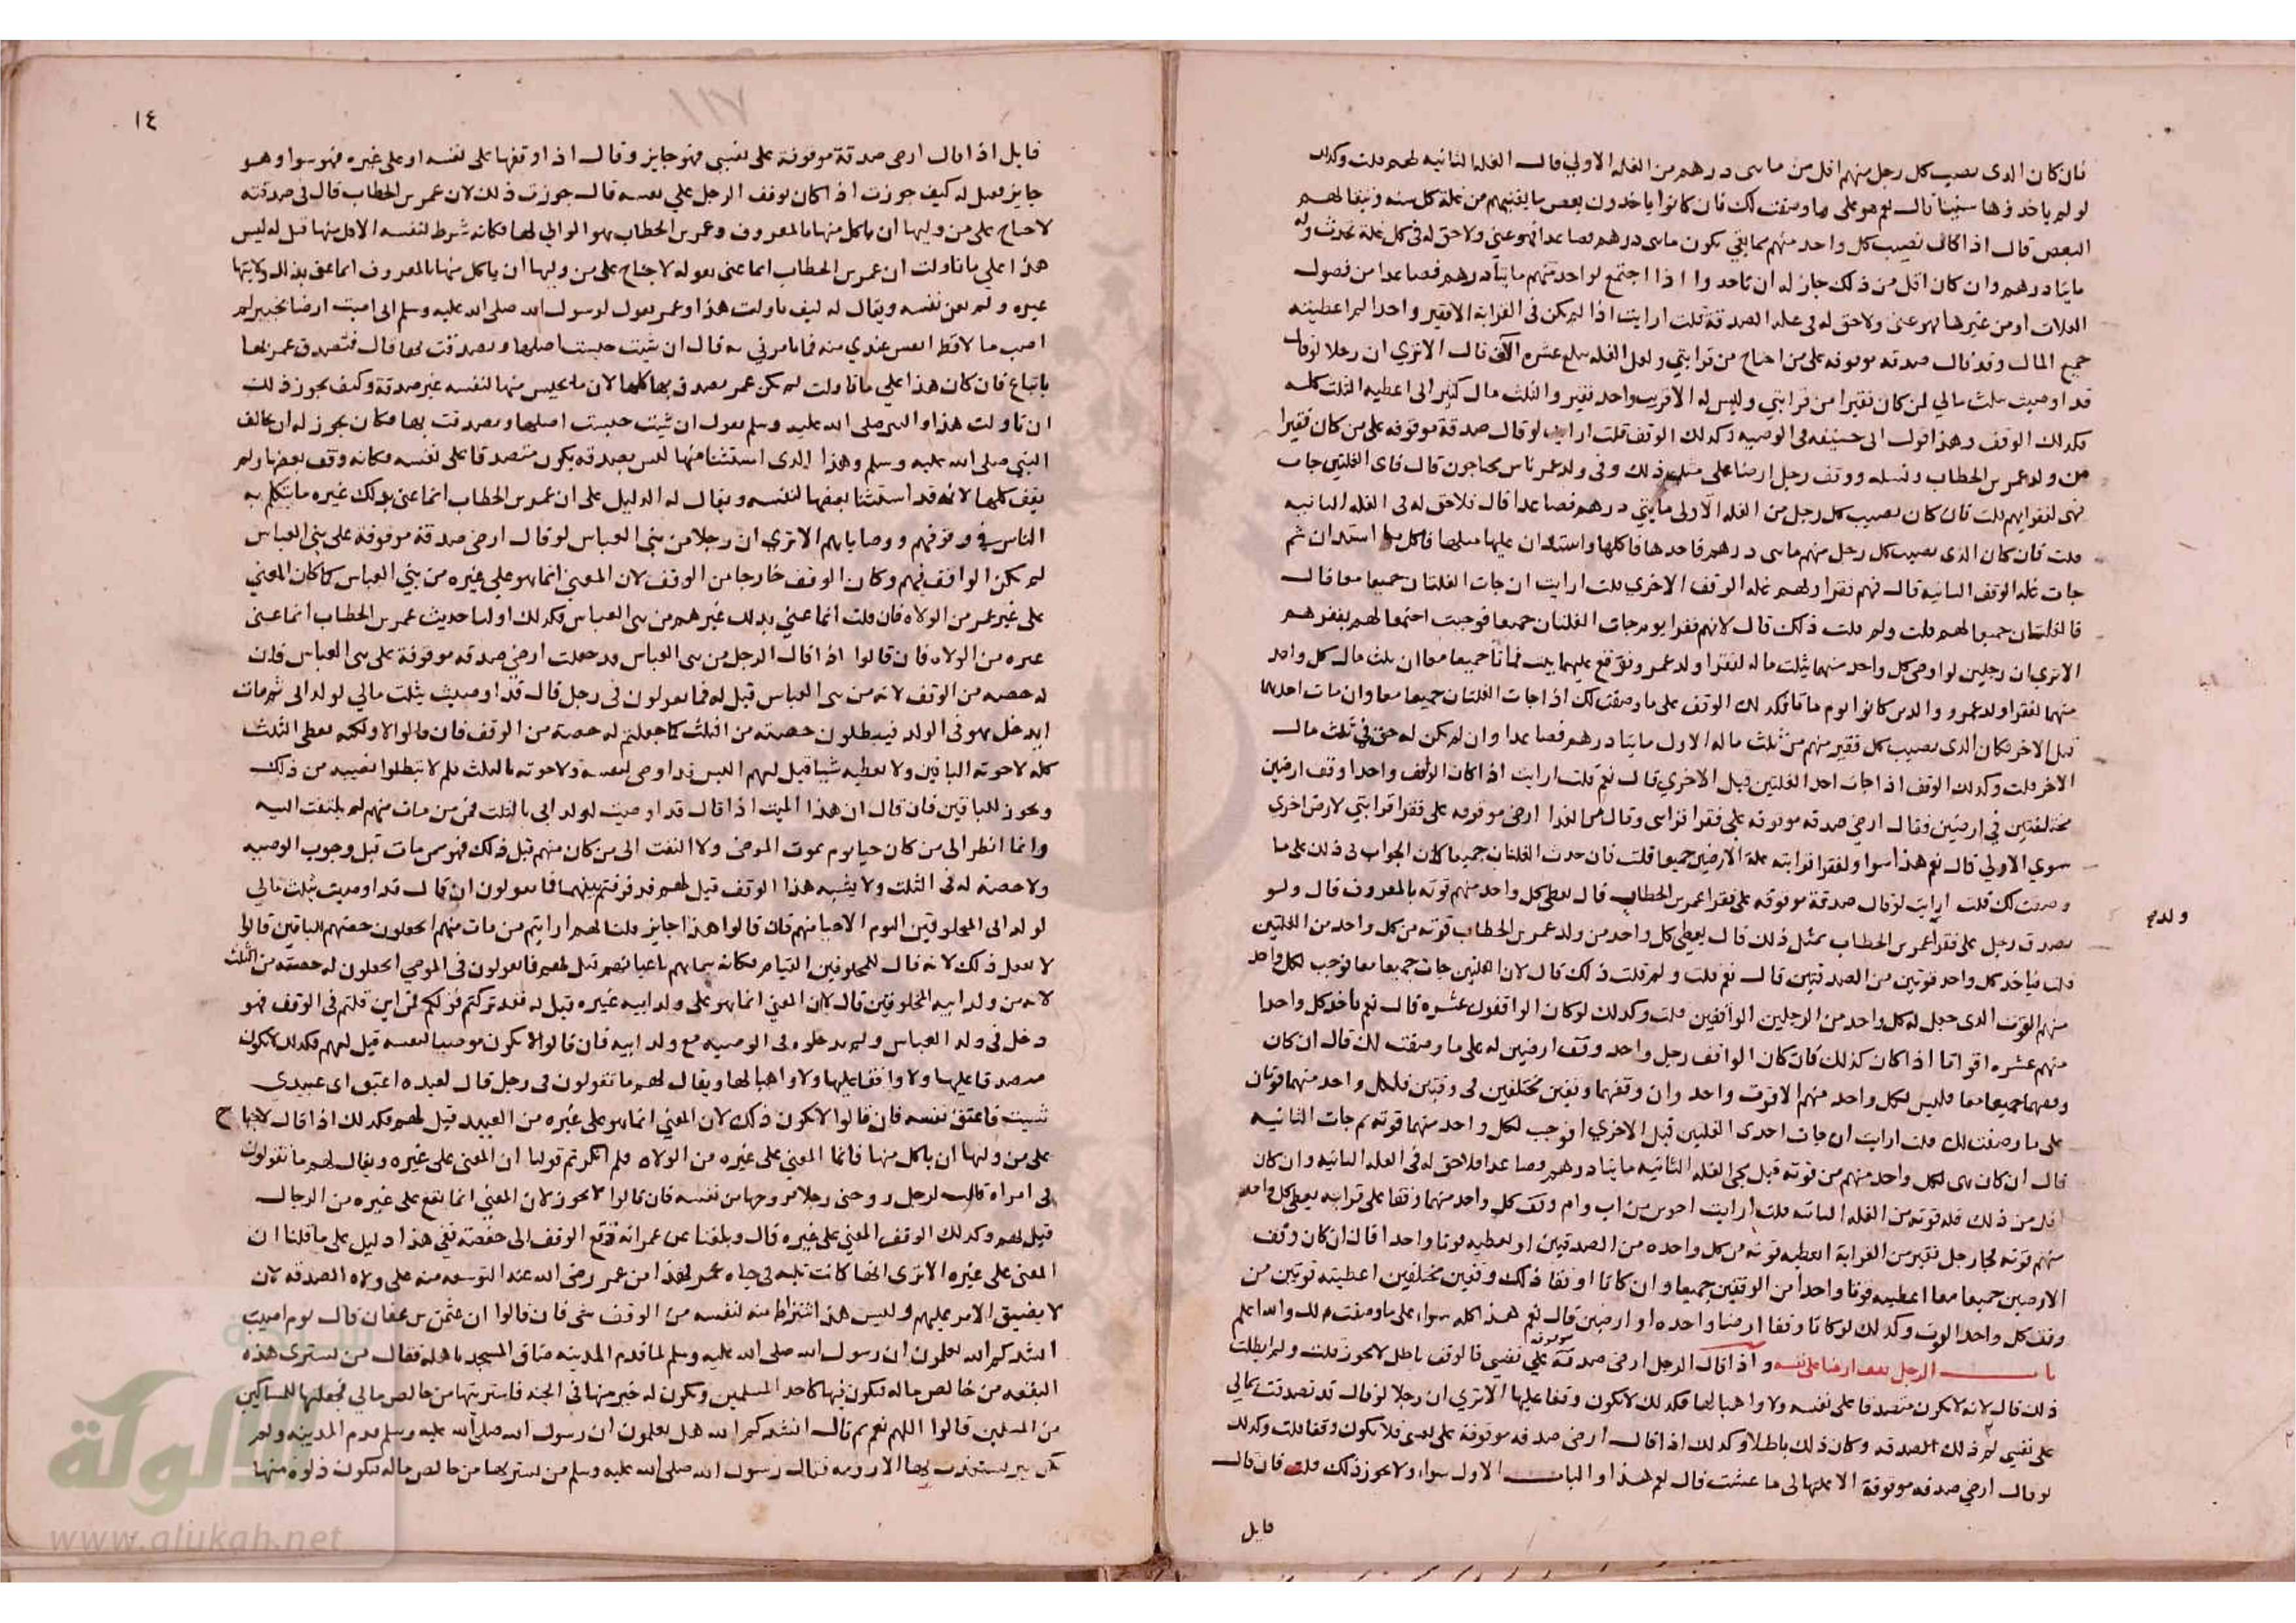 فان كان الذى يصيب كل رجل منهم اقل من مايتى درهم من الغلة الاولي قال الغلة الثانيه لهم قلت وكذلك
لو لم ياخذوها سنينا قال نعم هو على ما وصفت لك فان كانوا ياخذون بعض ما يغنيهم من غلة كل سنه ويبقا لهم
البعض قال اذا كان نصيب كل واحد منهم مما بقي يكون مايتى درهم فصاعدا فهو غني ولا حق له فى كل غلة تحدث وله
مايتا درهم وان كان اقل من ذلك جاز له ان ياخذ واذا اجتمع لواحد منهم مايتا درهم فصاعدا من فضول
الغلات او من غيرها فهو غنى ولا حق له فى غلة الصدقة قلت ارايت اذا لم يكن فى القرابة الا فقير واحد اليس اعطيته
جميع المال وقد قال صدقه موقوفه على من احتاج من قرابتي ولعل الغله تبلغ عشره الآف قال الا تري ان رجلا لو قال
قد اوصيت بثلث مالي لمن كان فقيرا من قرابتي وليس له الا قريب واحد فقير والثلث مال كثير انى اعطيه الثلث كله
فكذلك الوقف وهذا قول ابى حنيفه فى الوصيه وكذلك الوقف قلت ارايت لو قال صدقة موقوفه على من كان فقيرا
من ولد عمر بن الخطاب ونسله ووقف رجل ارضا على مثل ذلك وفى ولد عمر ناس محتاجون قال فاى الغلتين جات
فهى لفقرايهم قلت فان كان نصيب كل رجل من الغلة الاولى مايتي درهم فصاعدا قال فلا حق له فى الغله الثانيه
قلت فان كان الذى يصيب كل رجل منهم مايتى درهم فاخذها فاكلها واستدان عليها مثلها فاكل ما استدان ثم
جات غلة الوقف الثانيه قال فهم فقرا ولهم غله الوقف الاخري قلت ارايت ان جات الغلتان جميعا معا قال
فالغلتان جميعا لهم قلت ولم قلت ذلك قال لانهم فقرا يوم جات الغلتان جميعا فوجبت اجتمعا لهم بفقرهم
الا تري ان رجلين لو اوصى كل واحد منهما بثلث ماله لفقرا ولد عمر ووقع عليهما بيت فماتا جميعا معا ان ثلث مال كل واحد
منهما لفقرا ولد عمر والذين كانوا يوم ماتا فكذلك الوقف على ما وصفت لك اذا جات الغلتان جميعا معا وان مات احدهما
قبل الاخر فكان الذى يصيب كل فقير منهم من ثلث ماله الاول مايتا درهم فصاعدا وان لم يكن له حق في ثلث مال
الاخر قلت وكذلك الوقف اذا جات احدا الغلتين قبل الاخري قال نعم قلت ارايت اذا كان الوقف واحدا وقف ارضين
مختلفتين في ارضين فقال ارضي صدقه موقوفه على فقرا قرابتى وقال من الغدا ارضى موقوفه على فقرا قرابتي لارض اخرى
سوي الاولي قال نعم هذا سوا ولفقرا قرابته غلة الارضين جميعا قلت فان حدث الغلتان جميعا كان الجواب فى ذلك على ما
وصفت لك قلت ارايت لو قال صدقة موقوفه على فقرا عمر بن الخطاب قال يعطى كل واحد منهم قوته بالمعروف قال ولو
ولد
تصدق رجل على فقرا عمر بن الخطاب بمثل ذلك قال يعطي كل واحد من ولد عمر بن الخطاب قوته من كل واحد من الغلتين
قلت فياخذ كل واحد قوتين من الصدقتين قال نعم قلت ولم قلت ذلك قال لان الغلتين جات جميعا معا فوجب لكل واحد
منهم القوت الذى جعل له كل واحد من الرجلين الواقفين قلت وكذلك لو كان الواقفون عشره قال نعم ياخذ كل واحدا
منهم عشره اقواتا اذا كان كذلك فان كان الواقف رجل واحد وقف ارضين له على ما وصفت لك قال ان كان
وقفهما جميعا معا فليس لكل واحد منهم الا قوت واحد وان وقفهما وقفين مختلفين فى وقتين فلكل واحد منهما قوتان
على ما وصفت لك قلت ارايت ان جات احدى الغلتين قبل الاخري افوجب لكل واحد منهما قوته ثم جات الثانيه
قال ان كان بقى لكل واحد منهم من قوته قبل مجى الغله الثانيه مايتا درهم وصاعدا فلا حق له فى الغله الثانيه وان كان
اقل من ذلك فله قوته من الغله الثانيه قلت ارايت اخوين من اب وام وقف كل واحد منهما وقفا على قرابته يعطى كل واحد
منهم قوته فجا رجل فقير من القرابة ايعطيه قوته من كل واحده من الصدقتين او يعطيه قوتا واحدا قال ان كان وقف
الارضين جميعا معا اعطيته قوتا واحدا من الوقفين جميعا وان كانا اوقفا ذلك وقفين مختلفين اعطيته قوتين من
وقف كل واحد القوت وكذلك لو كانا وقفا ارضا واحده او ارضين قال نعم هذا كله سواء على ما وصفت لك والله اعلم
باب الرجل يقف ارضا على نفسه واذا قال الرجل ارضى صدقة موقوفة علي نفسي فالوقف باطل لا يجوز قلت ولم ابطلت
ذلك قال لانه لا يكون متصدقا على نفسه ولا واهبا لها فكذلك لا يكون وقفا عليها الا تري ان رجلا لو قال قد تصدقت بمالي
على نفسي لم ذلك الصدقه وكان ذلك باطلا وكذلك اذا قال ارضى صدقه موقوفة على نفسى فلا يكون وقفا قلت وكذلك
لو قال ارضي صدقه موقوفة الا غلتها لى ما عشت قال نعم هذا والباب الاول سواء ولا يجوز ذلك قلت فان قال
قايل
١١٧
١٤
قايل اذا قال ارضى صدقة موقوفة على نفسي فهو جايز وقال اذا اوقفها على نفسه او على غيره فهو سوا وهو
جايز فقيل له كيف جوزت اذا كان يوقف الرجل علي نفسه قال جوزت ذلك لان عمر بن الخطاب قال فى صدقته
لا جناح على من وليها ان ياكل منها بالمعروف وعمر بن الخطاب هو الوالي لها فكانه شرط لنفسه الاكل منها قيل له ليس
هذا علي ما تاولت ان عمر بن الخطاب انما عنى بقوله لا جناح على من وليها ان ياكل منها بالمعروف انما عنى بذلك ولايتها
غيره ولم يعن نفسه ويقال له كيف تاولت هذا وعمر يقول لرسول الله صلى الله عليه وسلم انى اصبت ارضا بخيبر لم
اصب مالا قط انفس عندي منه فما تامرني به قال ان شيت حبست اصلها وتصدقت بها قال فتصدق عمر بها
باتباع فان كان هذا علي ما تاولت لم يكن عمر تصدق بها كلها لان ما يحبس منها لنفسه غير صدقة وكيف يجوز ذلك
ان تاولت هذا والنبى صلى الله عليه وسلم يقول ان شيت حبست اصلها وتصدقت بها فكان يجوز له ان يخالف
النبي صلى الله عليه وسلم وهذا الذى استثنا منها ليس بصدقه يكون متصدقا على نفسه فكانه وقف بعضها ولم
يقف كلها لانه قد استثنا بعضها لنفسه ويقال له الدليل على ان عمر بن الخطاب انما عنى بذلك غيره ما يتكلم به
الناس في وقوفهم ووصاياهم الا تري ان رجلا من بني العباس لو قال ارضى صدقة موقوفة على بني العباس
لم يكن الواقف فيهم وكان الوقف خارجا من الوقف لان المعنى انما هو على غيره من بني العباس كما كان المعني
على غير عمر من الولاه فان قلت انما عني بذلك غيرهم من بنى العباس فكذلك اولنا حديث عمر بن الخطاب انما عنى
غيره من الولاه فان قالوا اذا قال الرجل من بنى العباس قد جعلت ارضي صدقه موقوفة على بنى العباس فان
له حصه من الوقف لانه من بنى العباس قيل له فما تقولون فى رجل قال قد اوصيت بثلث مالي لولد ابى ثم مات
ايدخل هو فى الولد فيبطلون حصته من الثلث كما جعلتم له حصة من الوقف فان قالوا لا ولكنه يعطى الثلث
كله لاخوته الباقين ولا يعطيه شيا قيل لهم اليس قد اوصى لنفسه ولاخوته بالثلث فلم لا تبطلوا نصيبه من ذلك
ويجوز للباقين فان قال ان هذا الميت اذا قال قد اوصيت لولد ابى بالثلث فمن من مات منهم لم يلتفت اليه
وانما انظر الى من كان حيا يوم يموت الموصى ولا التفت الى من كان منهم قبل ذلك فهو من مات قبل وجوب الوصيه
ولا حصة له فى الثلث ولا يشبه هذا الوقف قيل لهم قد فرقتم بينهما فما تقولون ان قال قد اوصيت بثلث مالي
لولد ابى المخلوقين اليوم الاحيا منهم فان قالوا هذا جايز قلنا لهم ارايتم من مات منهم اتجعلون حصتهم للباقين قالوا
لا نفعل ذلك لانه قال للمخلوقين القيام فكانه سماهم باعيانهم قيل لهم فما تقولون فى الموصي اتجعلون له حصته من الثلث
لانه من ولد ابيه المخلوقين قال لان المعني انما هو على ولد ابيه غيره قيل له فقد تركتم قولكم فمن اين قلتم فى الوقف فهو
دخل فى ولد العباس ولم يدخلوه فى الوصيه مع ولد ابيه فان قالوا لا يكون موصيا لنفسه قيل لهم فكذلك لا يكون
متصدقا عليها ولا واقفا عليها ولا واهبا لها ويقال لهم ما تقولون فى رجل قال لعبده اعتق اى عبيدى
شيت فاعتق نفسه فان قالوا لا يكون ذلك لان المعني انما هو على غيره من العبيد قيل لهم فكذلك اذا قال لا جناح
على من وليها ان ياكل منها فانما المعني على غيره من الولاه فلم انكرتم قولنا ان المعنى على غيره ويقال لهم ما تقولون
فى امراه قالت لرجل زوجنى رجلا فزوجها من نفسه فان قالوا لا يجوز لان المعني انما يقع على غيره من الرجال
قيل لهم وكذلك الوقف المعني على غيره قال وبلغنا عن عمر انه دفع الوقف الى حفصة ففى هذا دليل على ما قلنا ان
المعنى على غيره الا ترى انها كانت تليه فى حياه عمر فهذا من عمر رضى الله عنه التوسعه منه على ولاه الصدقه لان
لا يضيق الامر عليهم وليس هذا اشتراط منه لنفسه من الوقف شى فان قالوا ان عثمن بن عفان قال يوم اصيب
انشدكم الله تعلمون ان رسول الله صلى الله عليه وسلم لما قدم المدينه ضاق المسجد باهله فقال من يشترى هذه
البقعه من خالص ماله فيكون فيها كاحد المسلمين ويكون له خير منها فى الجنه فاشتريتها من خالص مالي فجعلتها للمساكين
من المسلمين قالوا اللهم نعم ثم قال انشدكم الله هل تعلمون ان رسول الله صلى الله عليه وسلم قدم المدينه ولم
يكن بير يستعذب بها الا رومه فقال رسول الله صلى الله عليه وسلم من يشتريها من خالص ماله فيكون دلوه منها
شبكة
الألوكة
www.alukah.net